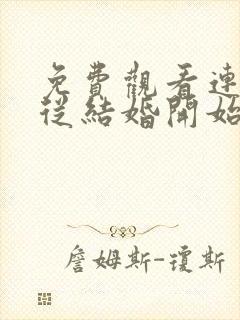 免費觀看連
從結婚開始
詹姆斯-瓊斯